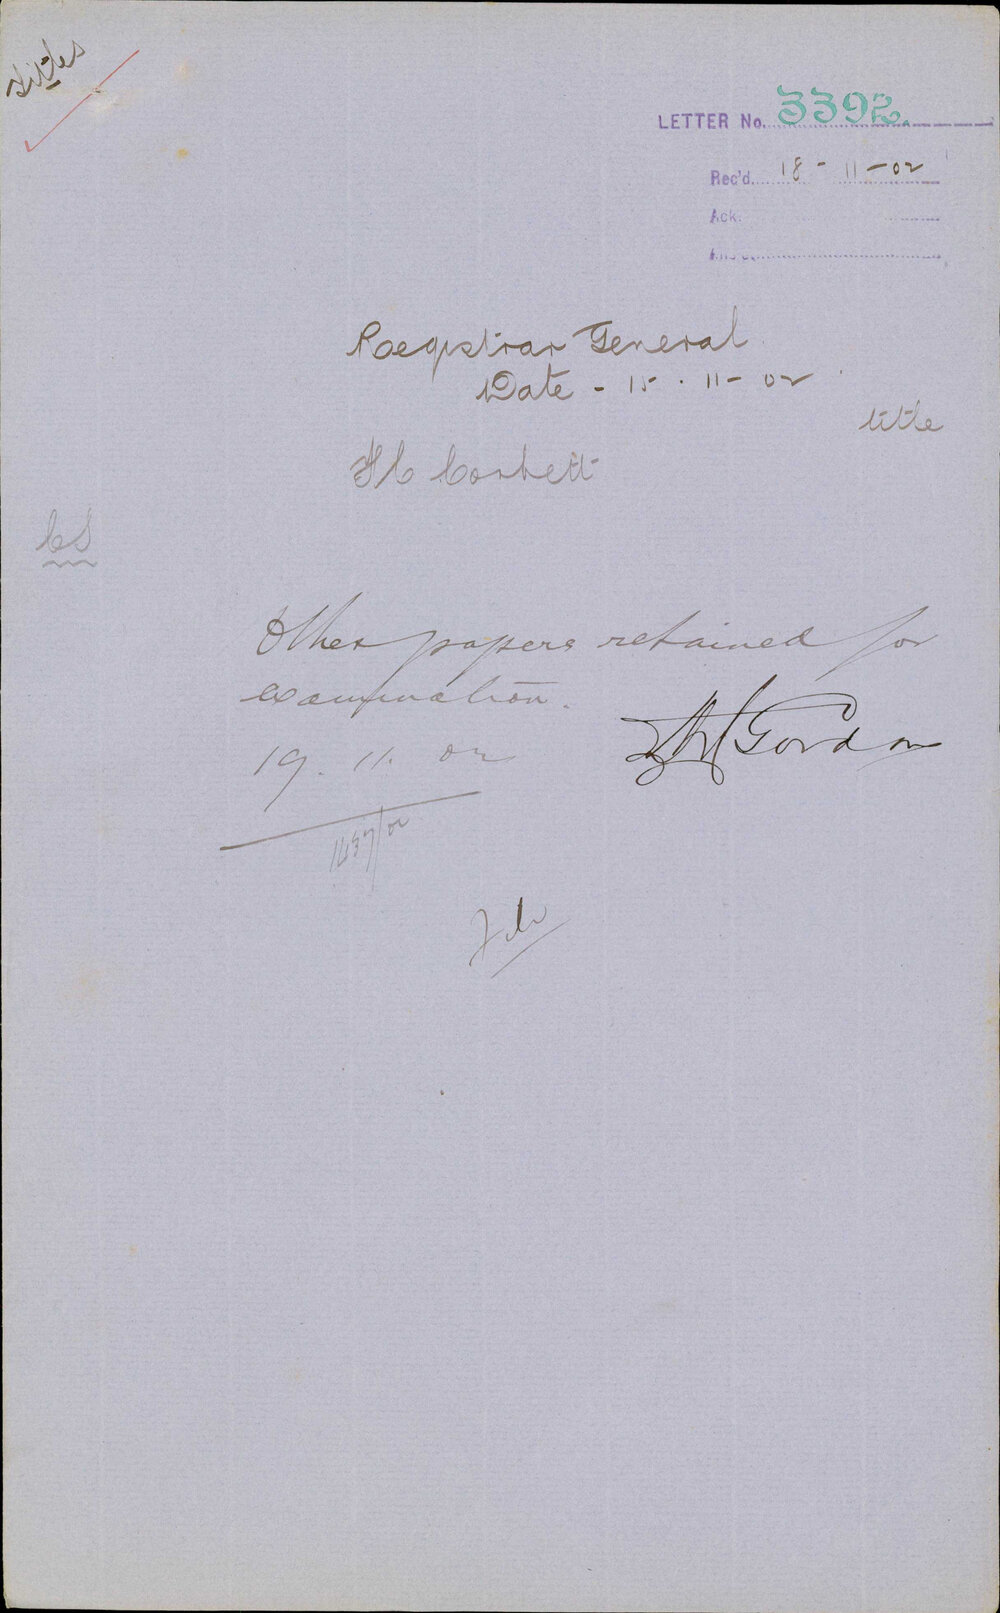 Titles
LETTER No. 3392.
Rec'd. 18-11-02
Ack.
Registrar General
Date - 15.11-02
title
F C Corbett
CS
Other papers retained for
examination.
19.11.02
Gordon
1437/02
File